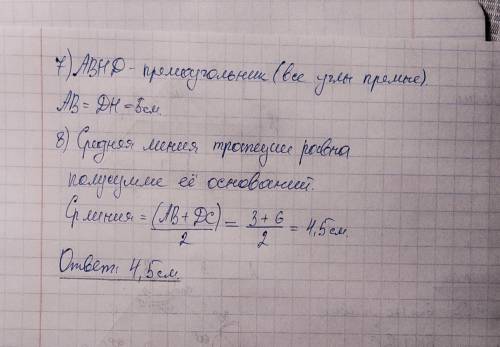 7) ABHD - прямоугольник (все углы прямые).
AB = DH = 3 см.
8) Средняя линия трапеции равна
полусумме её оснований.
Ср линия = (AB + DC) / 2 = 3 + 6 / 2 = 4,5 см.
Ответ: 4,5 см.